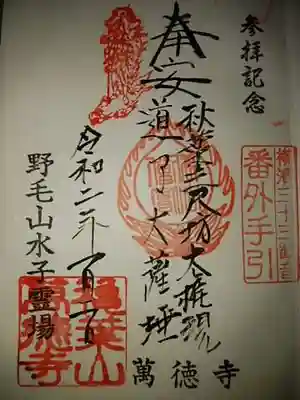 參拝記念
番外手引
奉安
秋葉三尺坊大権現
道了大薩埵
令和二年
野毛山水子霊場
萬徳寺